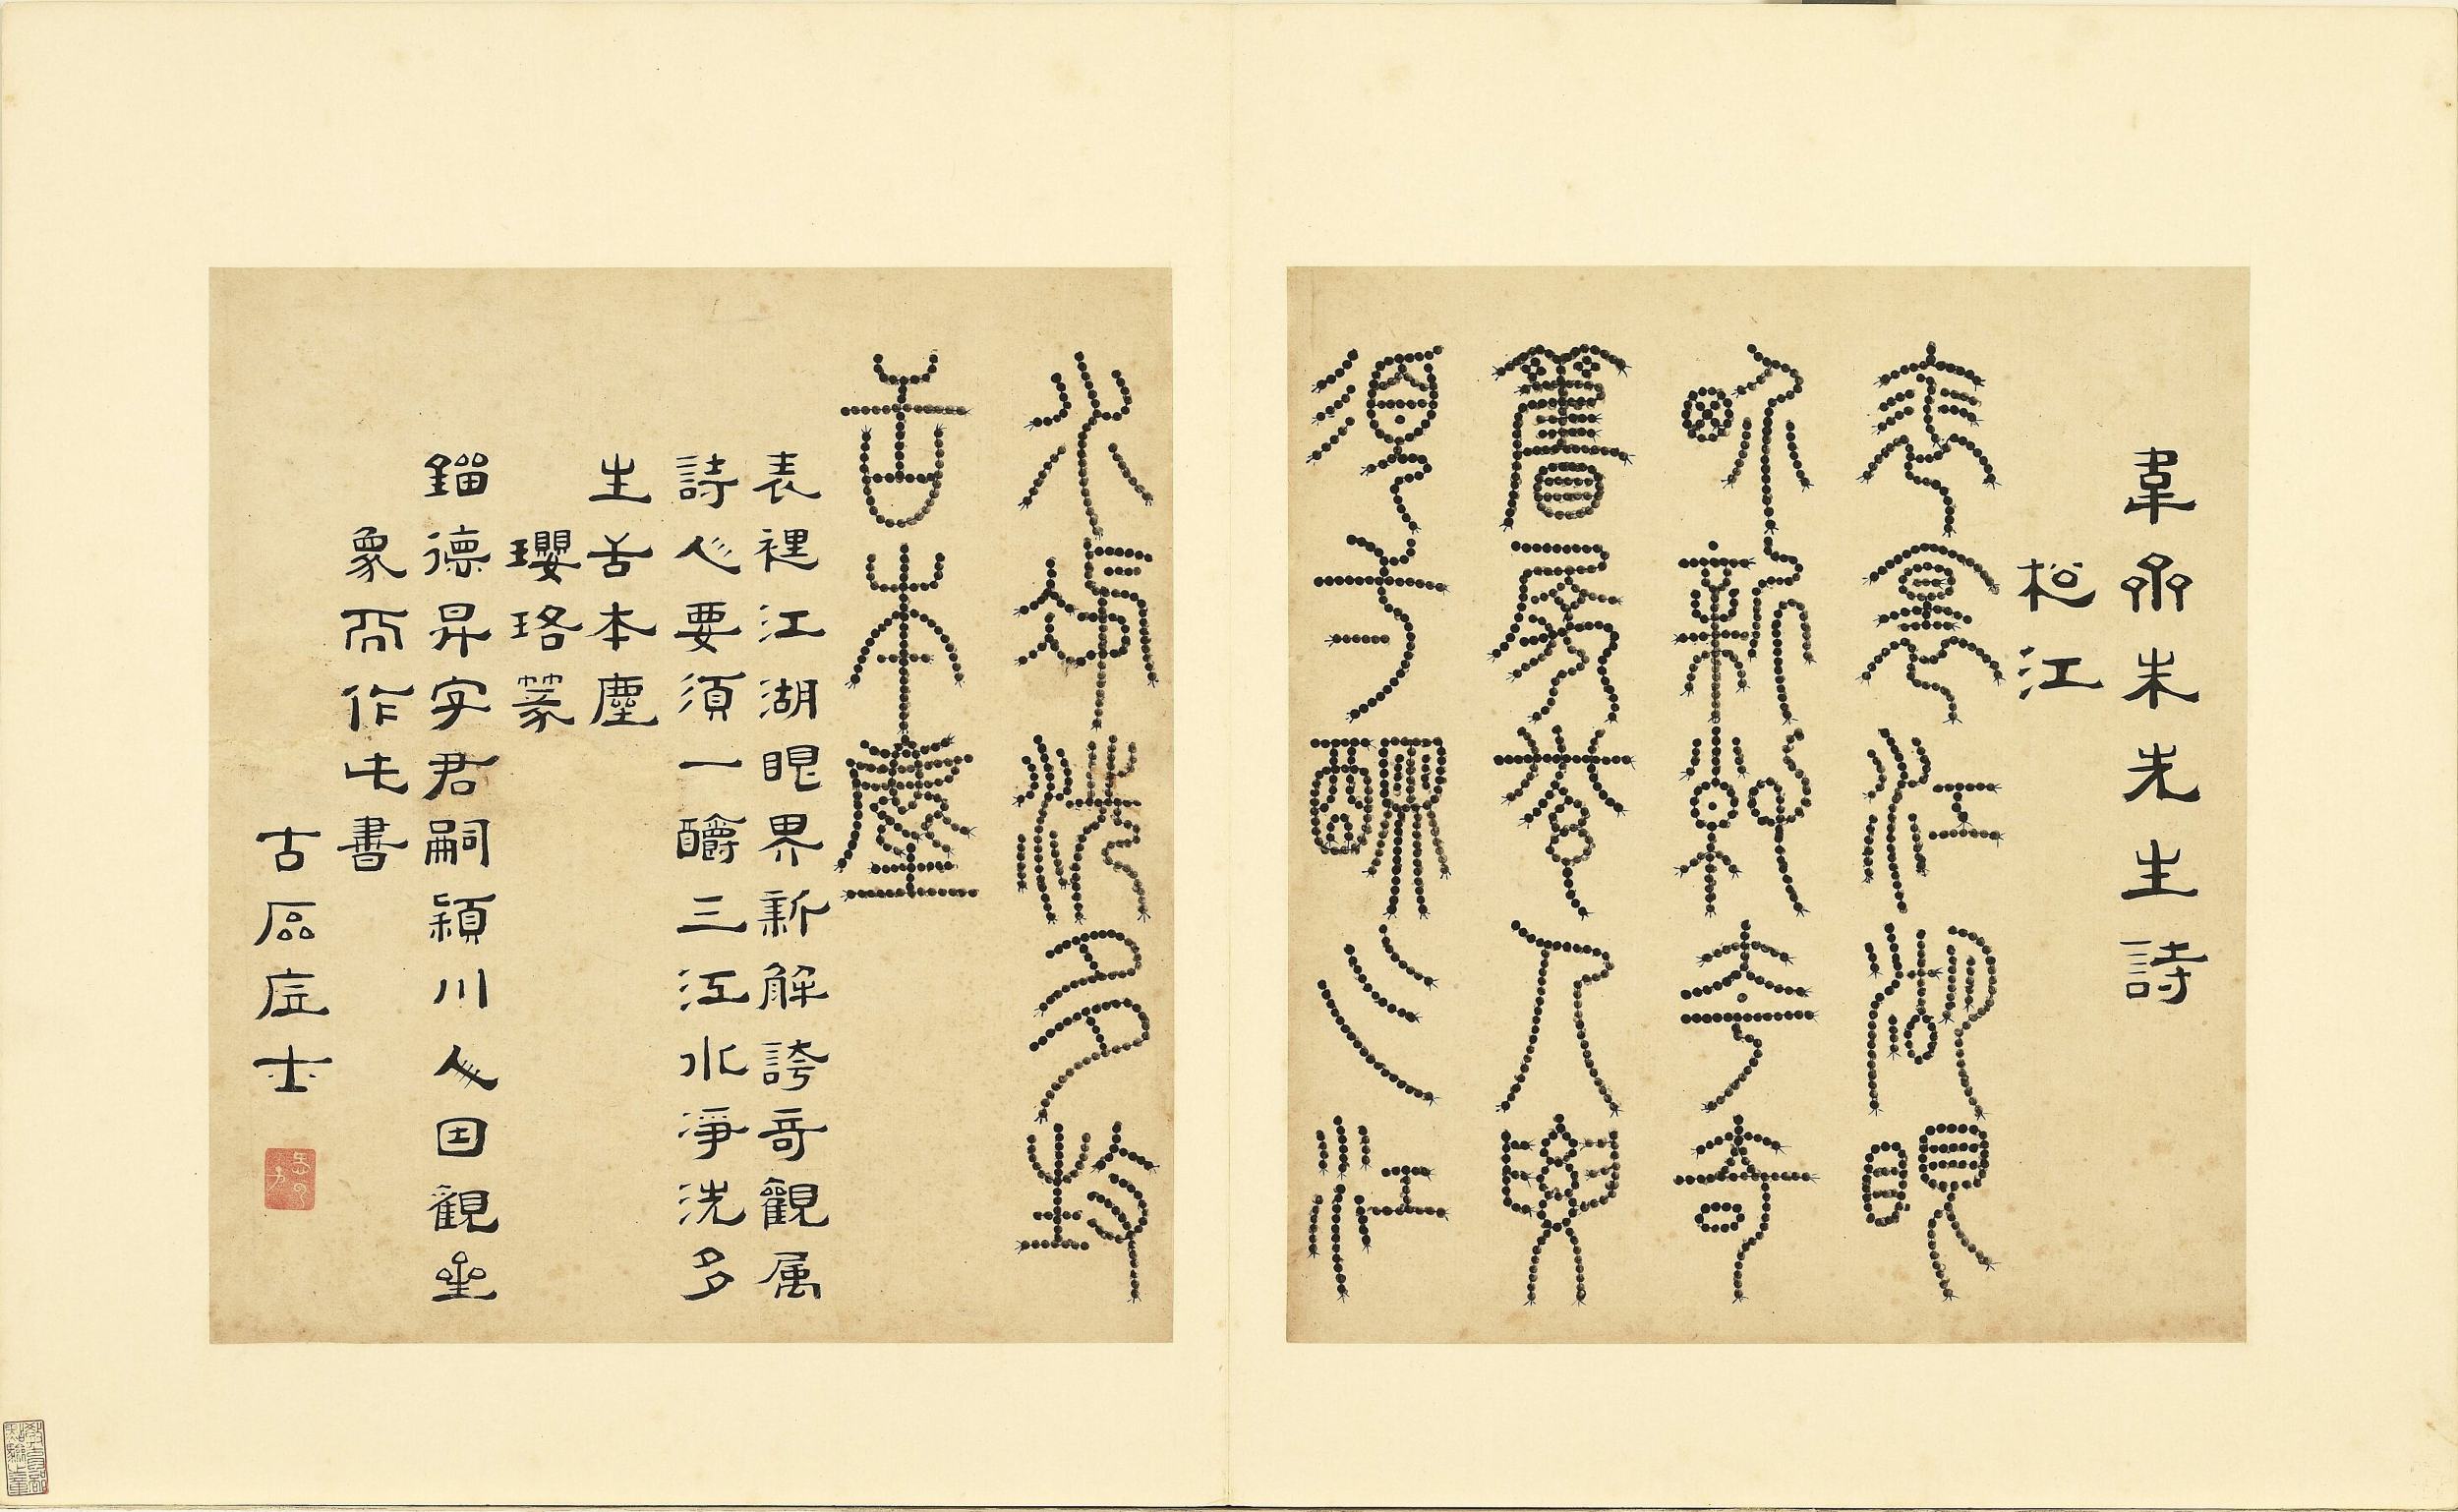 韋齋朱先生詩
松江
表裏江湖眼
界新解夸奇
觀屬詩人要
須一釂三江
水淨洗多生
舌本塵
表裡江湖眼界新解誇奇觀属
詩人要須一釂三江水淨洗多
生舌本塵
瓔珞篆
鎦德昇字君嗣穎川人因觀星
象而作此書
古士